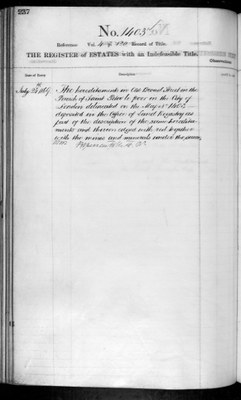 237
No. 1405
Reference: Vol. 4 Record of Title.
THE REGISTER of ESTATES with an Indefeasible Title.
Date of Entry
Description
Observation
July 23 1869
The hereditaments in Old Broad Street in the
Parish of Saint Peter le poor in the City of
London delineated in the Map No. 1405
deposited in the Office of Land Registry as
part of the description of the same heredita-
ments and thereon edged with red together
with the mines and minerals under the same